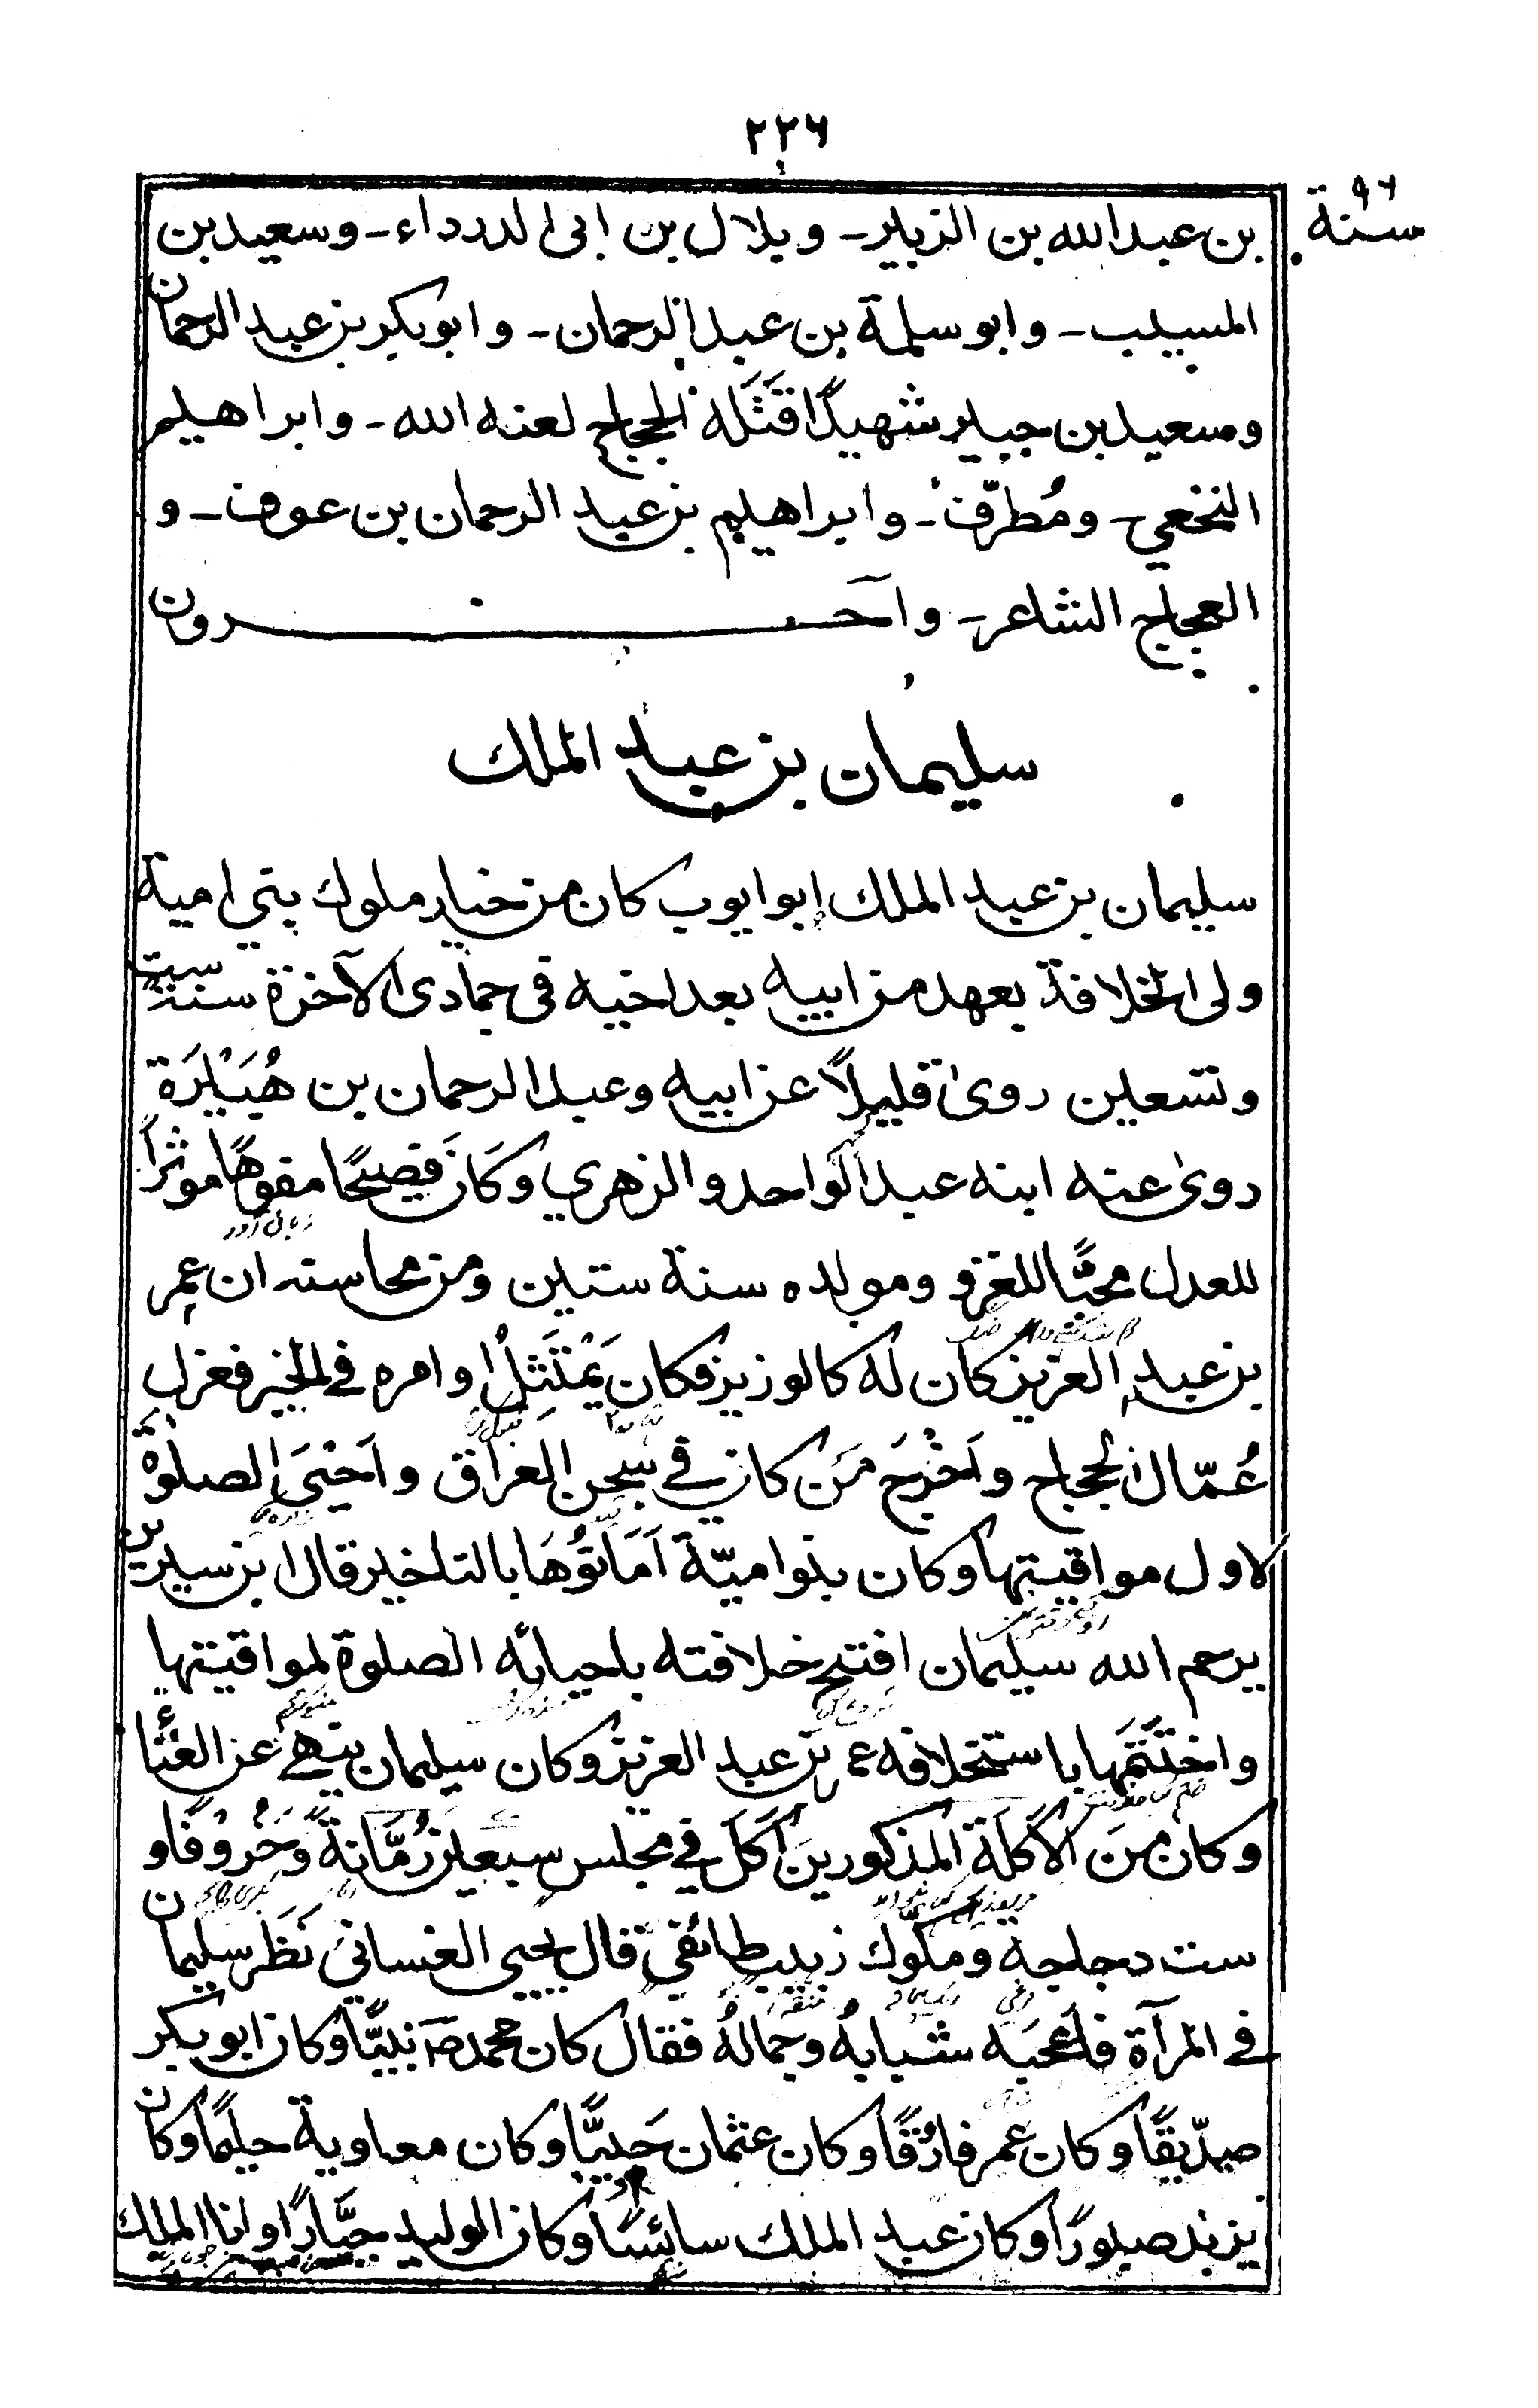 ٢٢٦
سنة ٩٦
بن عبد الله بن الزبير ـ وبلال بن ابى الدرداء ـ وسعيد بن
المسيب ـ وابو سلمة بن عبد الرحمان ـ وابوبكر بن عبد الرحمان
وسعيد بن جبير شهيدًا قَتَلَه الحجاج لعنه الله ـ وابراهيم
النخعي ـ ومُطرّف ـ وابراهيم بن عبد الرحمان بن عوف ـ و
العجاج الشاعر ـ وآخرون
سليمان بن عبد الملك
سليمان بن عبد الملك ابو ايوب كان من خيار ملوك بني امية
ولى الخلافة بعهد من ابيه بعد اخيه في جمادى الآخرة سنة ست
وتسعين روىٰ قليلاً عن ابيه وعبد الرحمان بن هُبَيْرَة
روىٰ عنه ابنه عبد الواحد والزهري وكَانَ فصيحًا مفوهًا موثرًا
للعدل محبًّا للغزو ومولده سنة ستين ومن محاسنه ان عمر
بن عبد العزيز كان له كالوزيز فكان يَمْتَثِلُ اوامره في الخير فعزل
عُمّال الحجاج واَخْرَجَ مَن كان في سجن العراق واَحْيَى الصلوٰةَ
لاول مواقيتها وكان بنو اميّة اَمَاتُوْهَا بالتاخير قال ابن سيرين
يرحم الله سليمان افتتح خلافته باحيائه الصلوة لمواقيتها
واخْتَتَمَها باستخلافه عمر بن عبد العزيز وكان سليمان ينهىٰ عن الغناء
وكان مِنَ الاَكَلَةِ المذكورين اَكَلَ في مجلس سبعين رُمَّانةً وَخَرُوْفًا و
ست دجاجة ومكوك زبيب طائفي قال يحيى الغساني نَظَر سليمان
في المرآة فاعجبه شبابهُ وجمالهُ فقال كان محمد ص نبيًّا وكان ابو بكر
صِدّيقًا وكان عمر فارُقًا وكان عثمان حَيِيًّا وكان معاوية حليمًا وكان
يزيد صبورًا وكان عبد الملك سائسًا وكان الوليد جبَّارًا وانا الملك